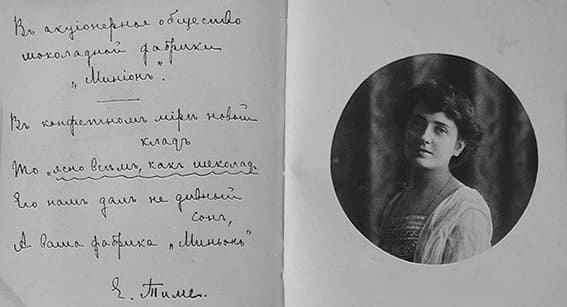 Въ акціонерное общество
шоколадной фабрики
„Миніонъ".
Въ конфетномъ мірѣ новой
кладъ
То „ясно всѣмъ, какъ шеколад.
Его намъ далъ не дивный
сонъ,
А ваша фабрика „Миньонъ"
Е. Тиме.